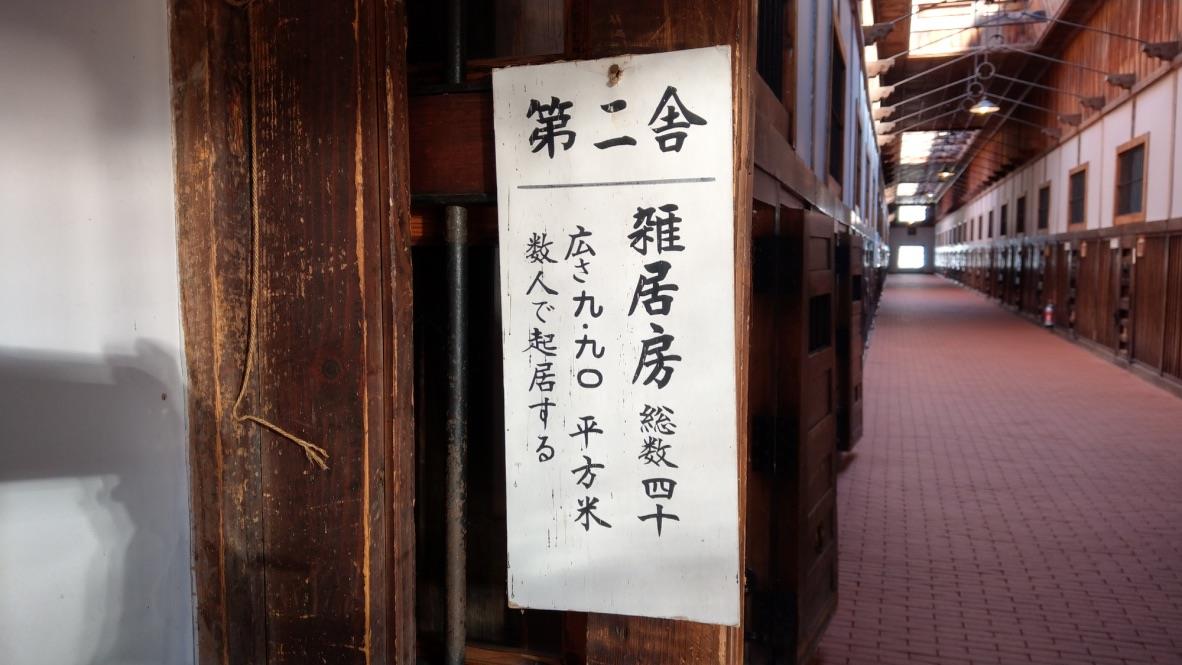 第二舎
雑居房 総数四十
広さ九・九〇 平方米
数人で起居する